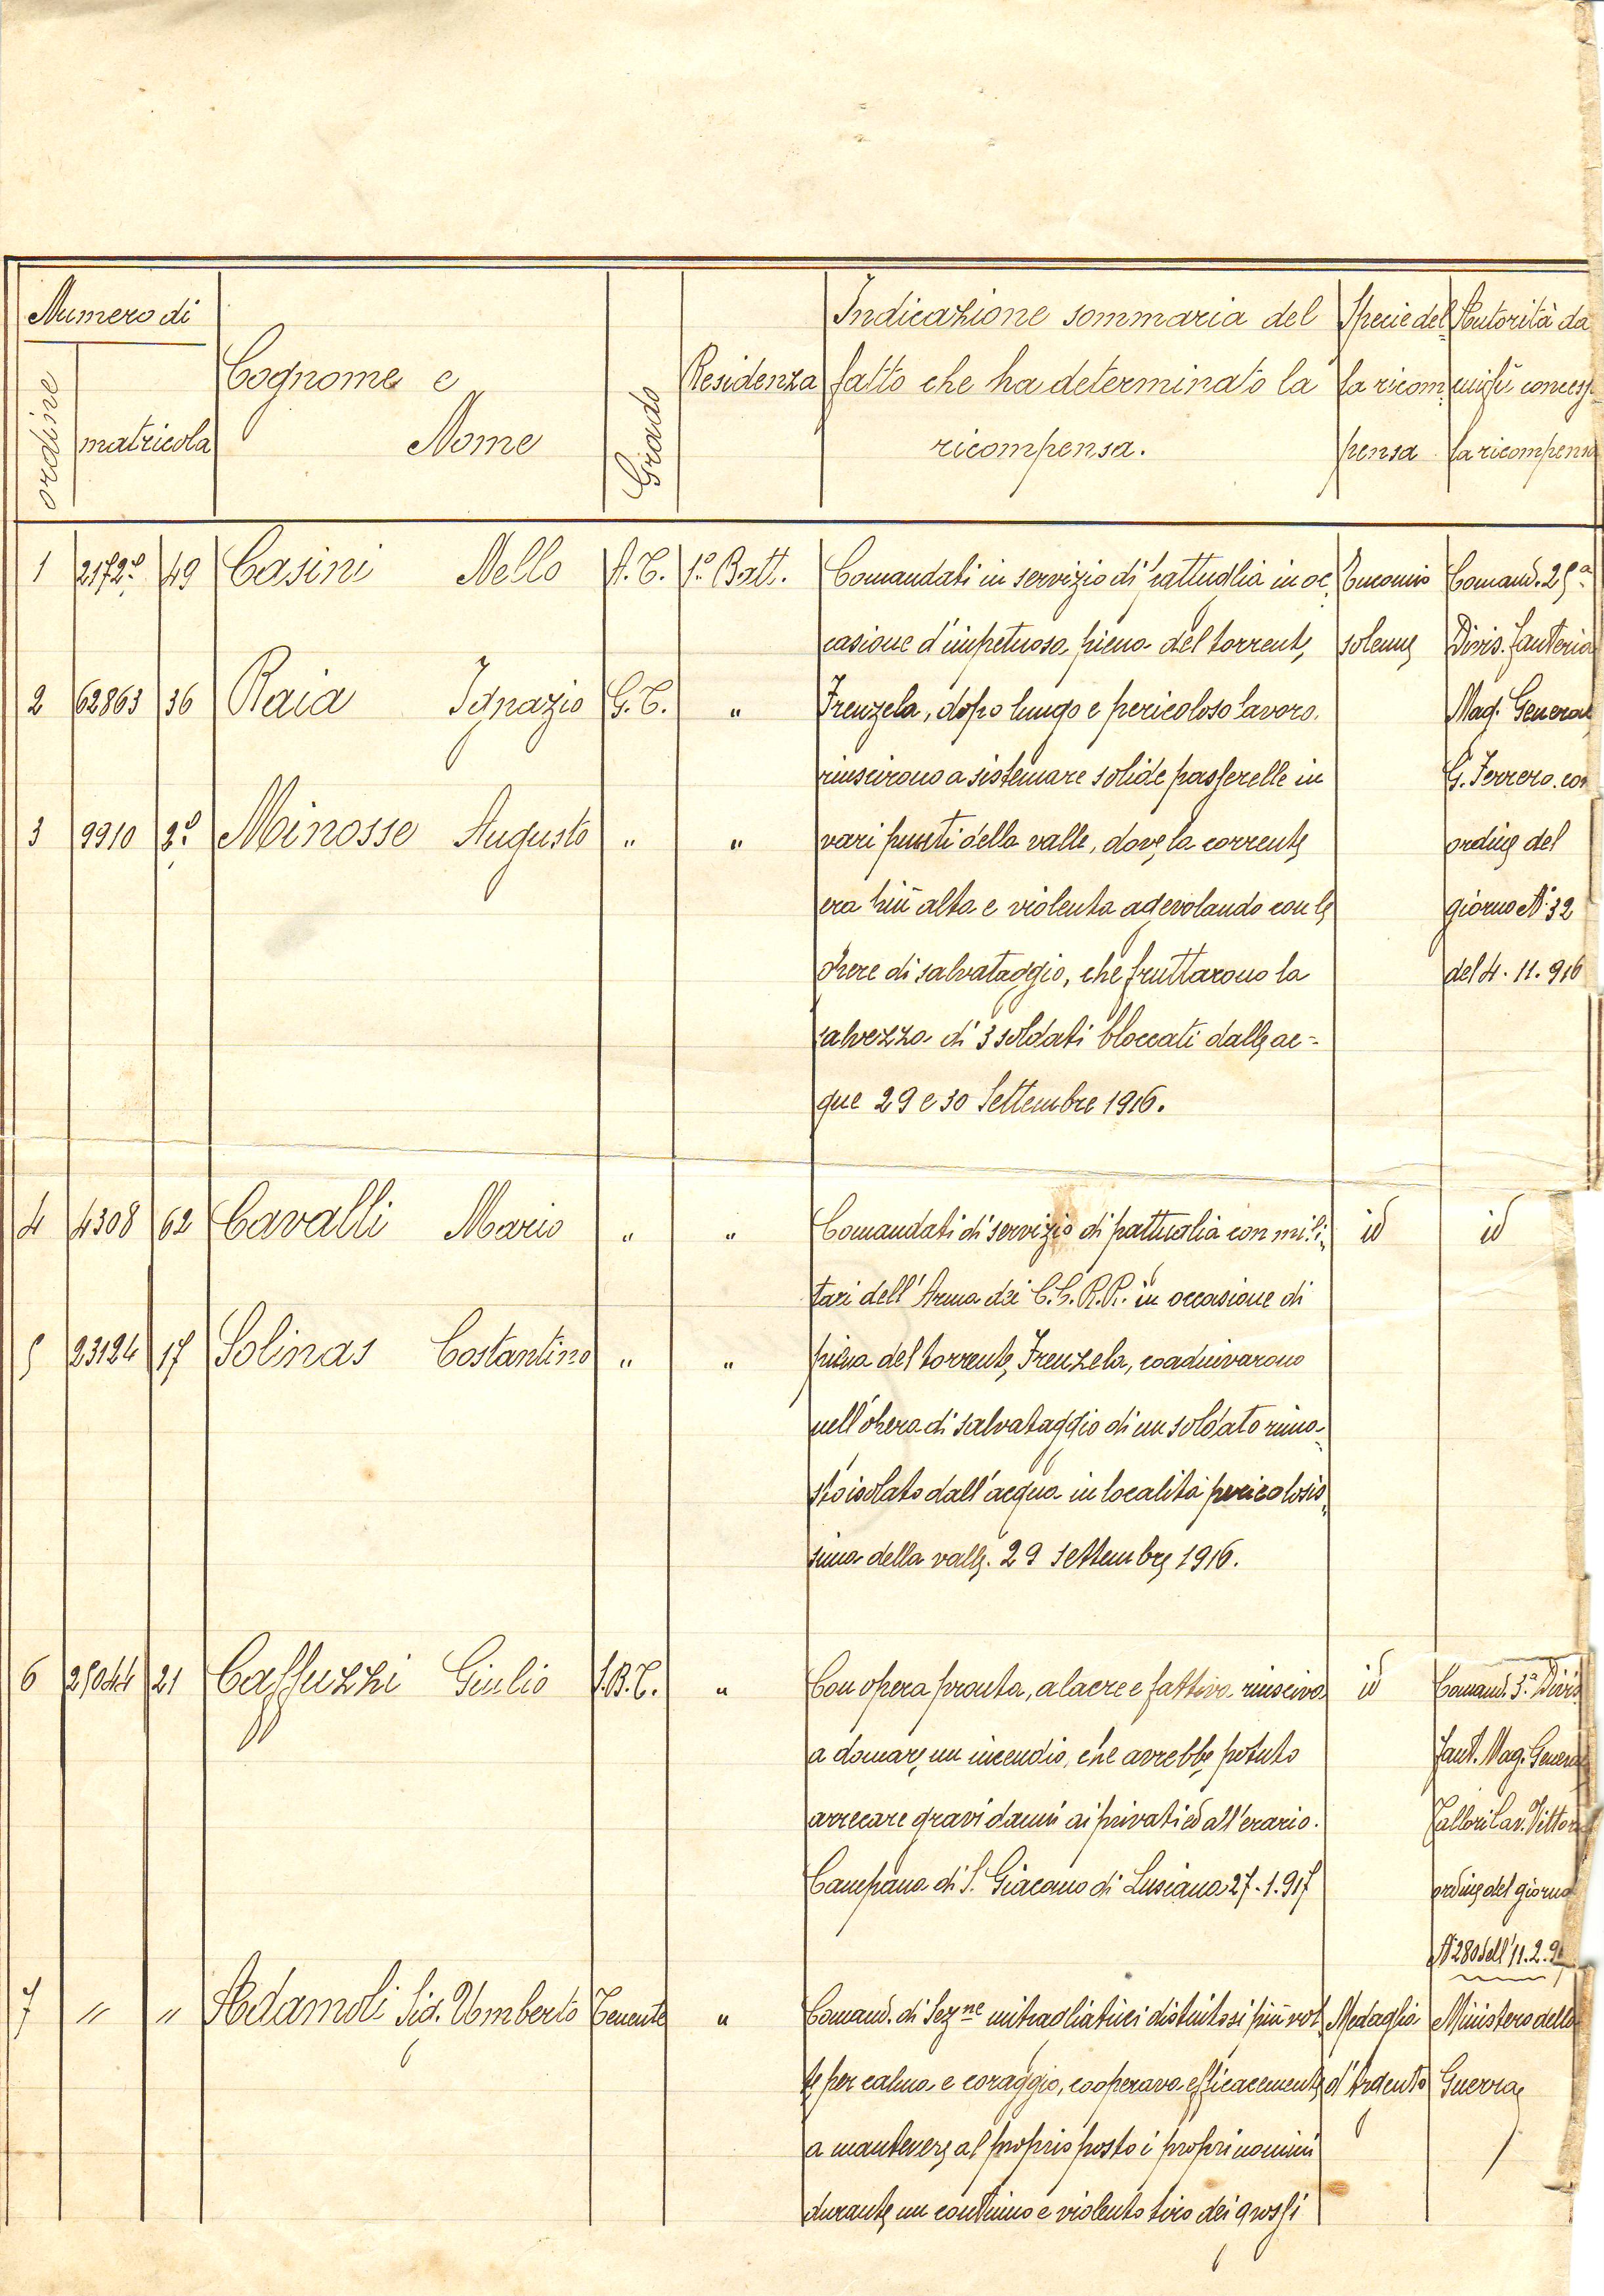 Numero di
ordine
matricola
Cognome e
Nome
Grado
Residenza
Indicazione sommaria del
fatto che ha determinato la
ricompensa.
Specie del=
la ricom=
pensa
Autorità da
cui fu concess
la ricompensa
1 49 Casini Nello A.C. 1° Batt. Comandati in servizio di pattuglia in oc= Encomio Comand. 25ª
casione d'impetuosa piena del torrente solenne Divis. fanteria
2 62863 36 Raia Ignazio G.C. " Frenzela, dopo lungo e pericoloso lavoro. Mag. General
riuscirono a sistemare solide passerelle in G. Ferrero. con
3 9910 Minosse Augusto " " vari punti della valle, dove la corrente ordine del
era più alta e violenta agevolando con le giorno N° 32
opere di salvataggio, che fruttarono la del 4. 11. 916
salvezza di 3 soldati bloccati dalle ac=
que 29 e 30 Settembre 1916.
4 4308 62 Cavalli Mario " " Comandati di servizio di pattuglia con mili= id id
tari dell'Arma dei C.C.R.R. in occasione di
5 23124 17 Solinas Costantino " " piena del torrente Frenzela, coadiuvarono
nell'opera di salvataggio di un soldato rima=
sto isolato dall'acqua in località pericolosis=
sima della valle. 29 settembre 1916.
6 25044 21 Caffuzzi Giulio S.B.C. " Con opera pronta, alacre e fattiva riusciva id Comand. 3ª Divis
a domare un incendio, che avrebbe potuto fant. Mag. General
arrecare gravi danni ai privati ed all'erario. Cav. Vittor
Campana di S. Giacomo di Lusiana 27.1.917 ordine del giorno
N° 280 dell'11.2.9
7 " " Adamoli Sig. Umberto Tenente " Comand. di Sezne mitragliatrici distintosi più vol Medaglia Ministero della
te per calma e coraggio, cooperava efficacemente d'Argento Guerra
a mantenere al proprio posto i propri uomini
durante un continuo e violento tiro dei grossi